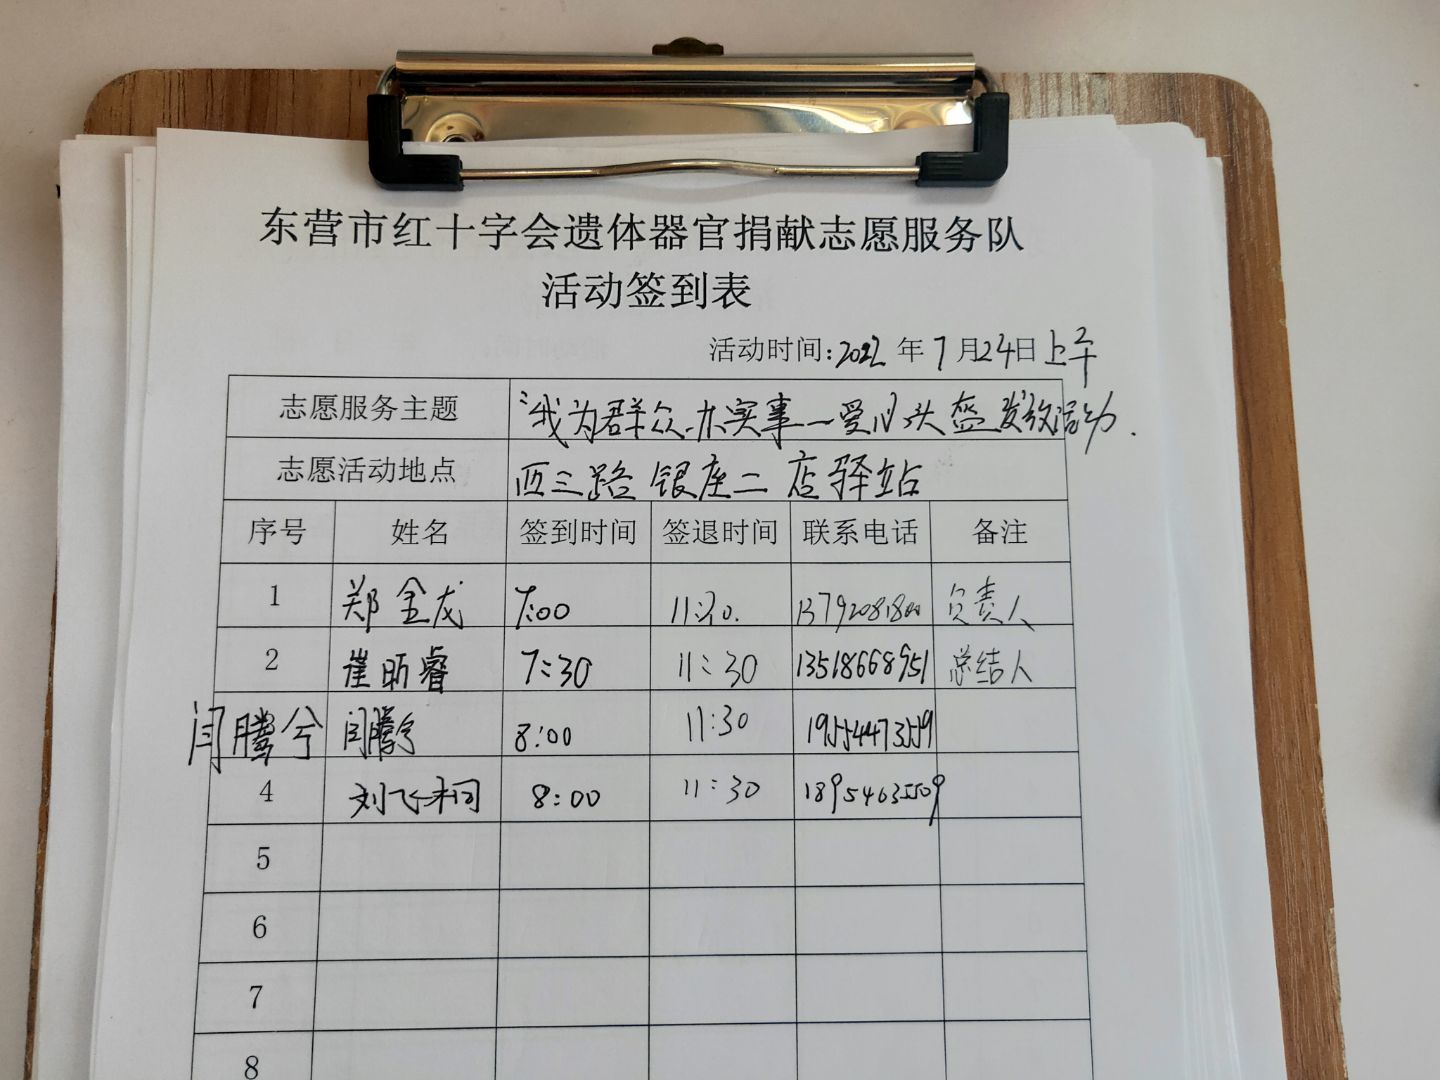 东营市红十字会遗体器官捐献志愿服务队
活动签到表
活动时间:2022年7月24日上午
志愿服务主题 "我为群众办实事—爱心头盔发放活动.
志愿活动地点 西三路银座二店驿站
序号 姓名 签到时间 签退时间 联系电话 备注
1 郑金龙 7:00 11:30. 负责人
2 崔昕睿 7:30 11:30 13518668951 总结人
闫腾兮 闫腾兮 8:00 11:30 19554473559
4 刘飞 8:00 11:30 18954635509
5
6
7
8